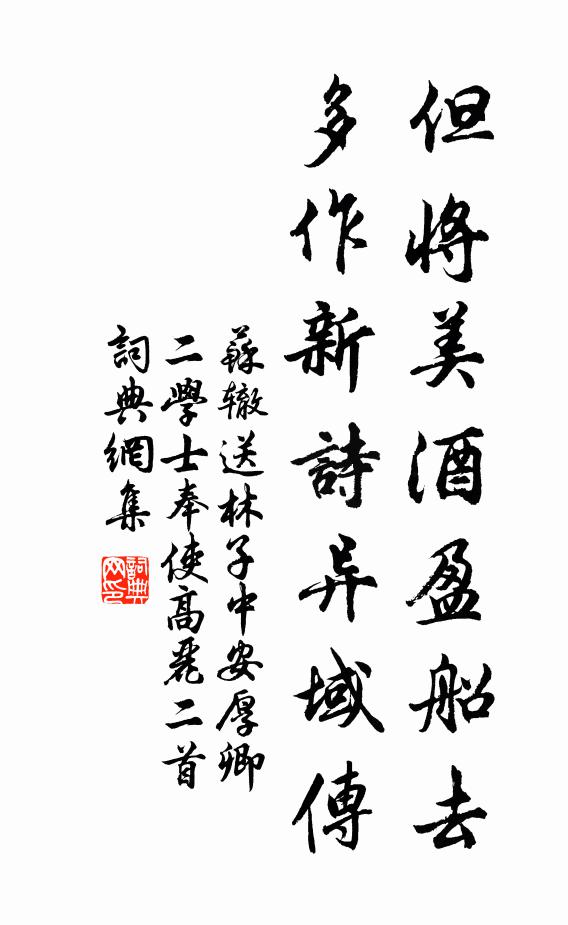 但將美酒盈船去
多作新詩异域傳
蘇辙送林子中安厚卿
二學士奉使高麗二首
詞典網集
詞典网印